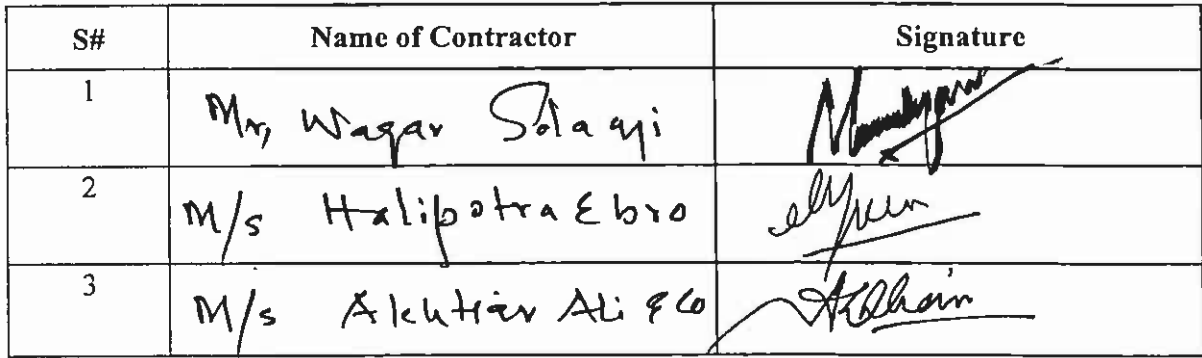 S# Name of Contractor Signature
1 Mr, Waqar Solangi
2 M/s Halipotra Ebro
3 M/s Akhtiar Ali & Co